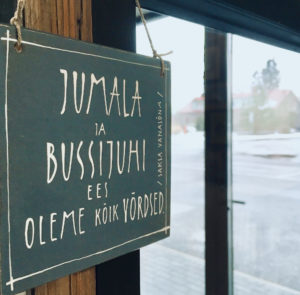 JUMALA
JA
BUSSIJUHI
EES
OLEME KÕIK VÕRDSED.
/ SAKSA VANASÕNA /